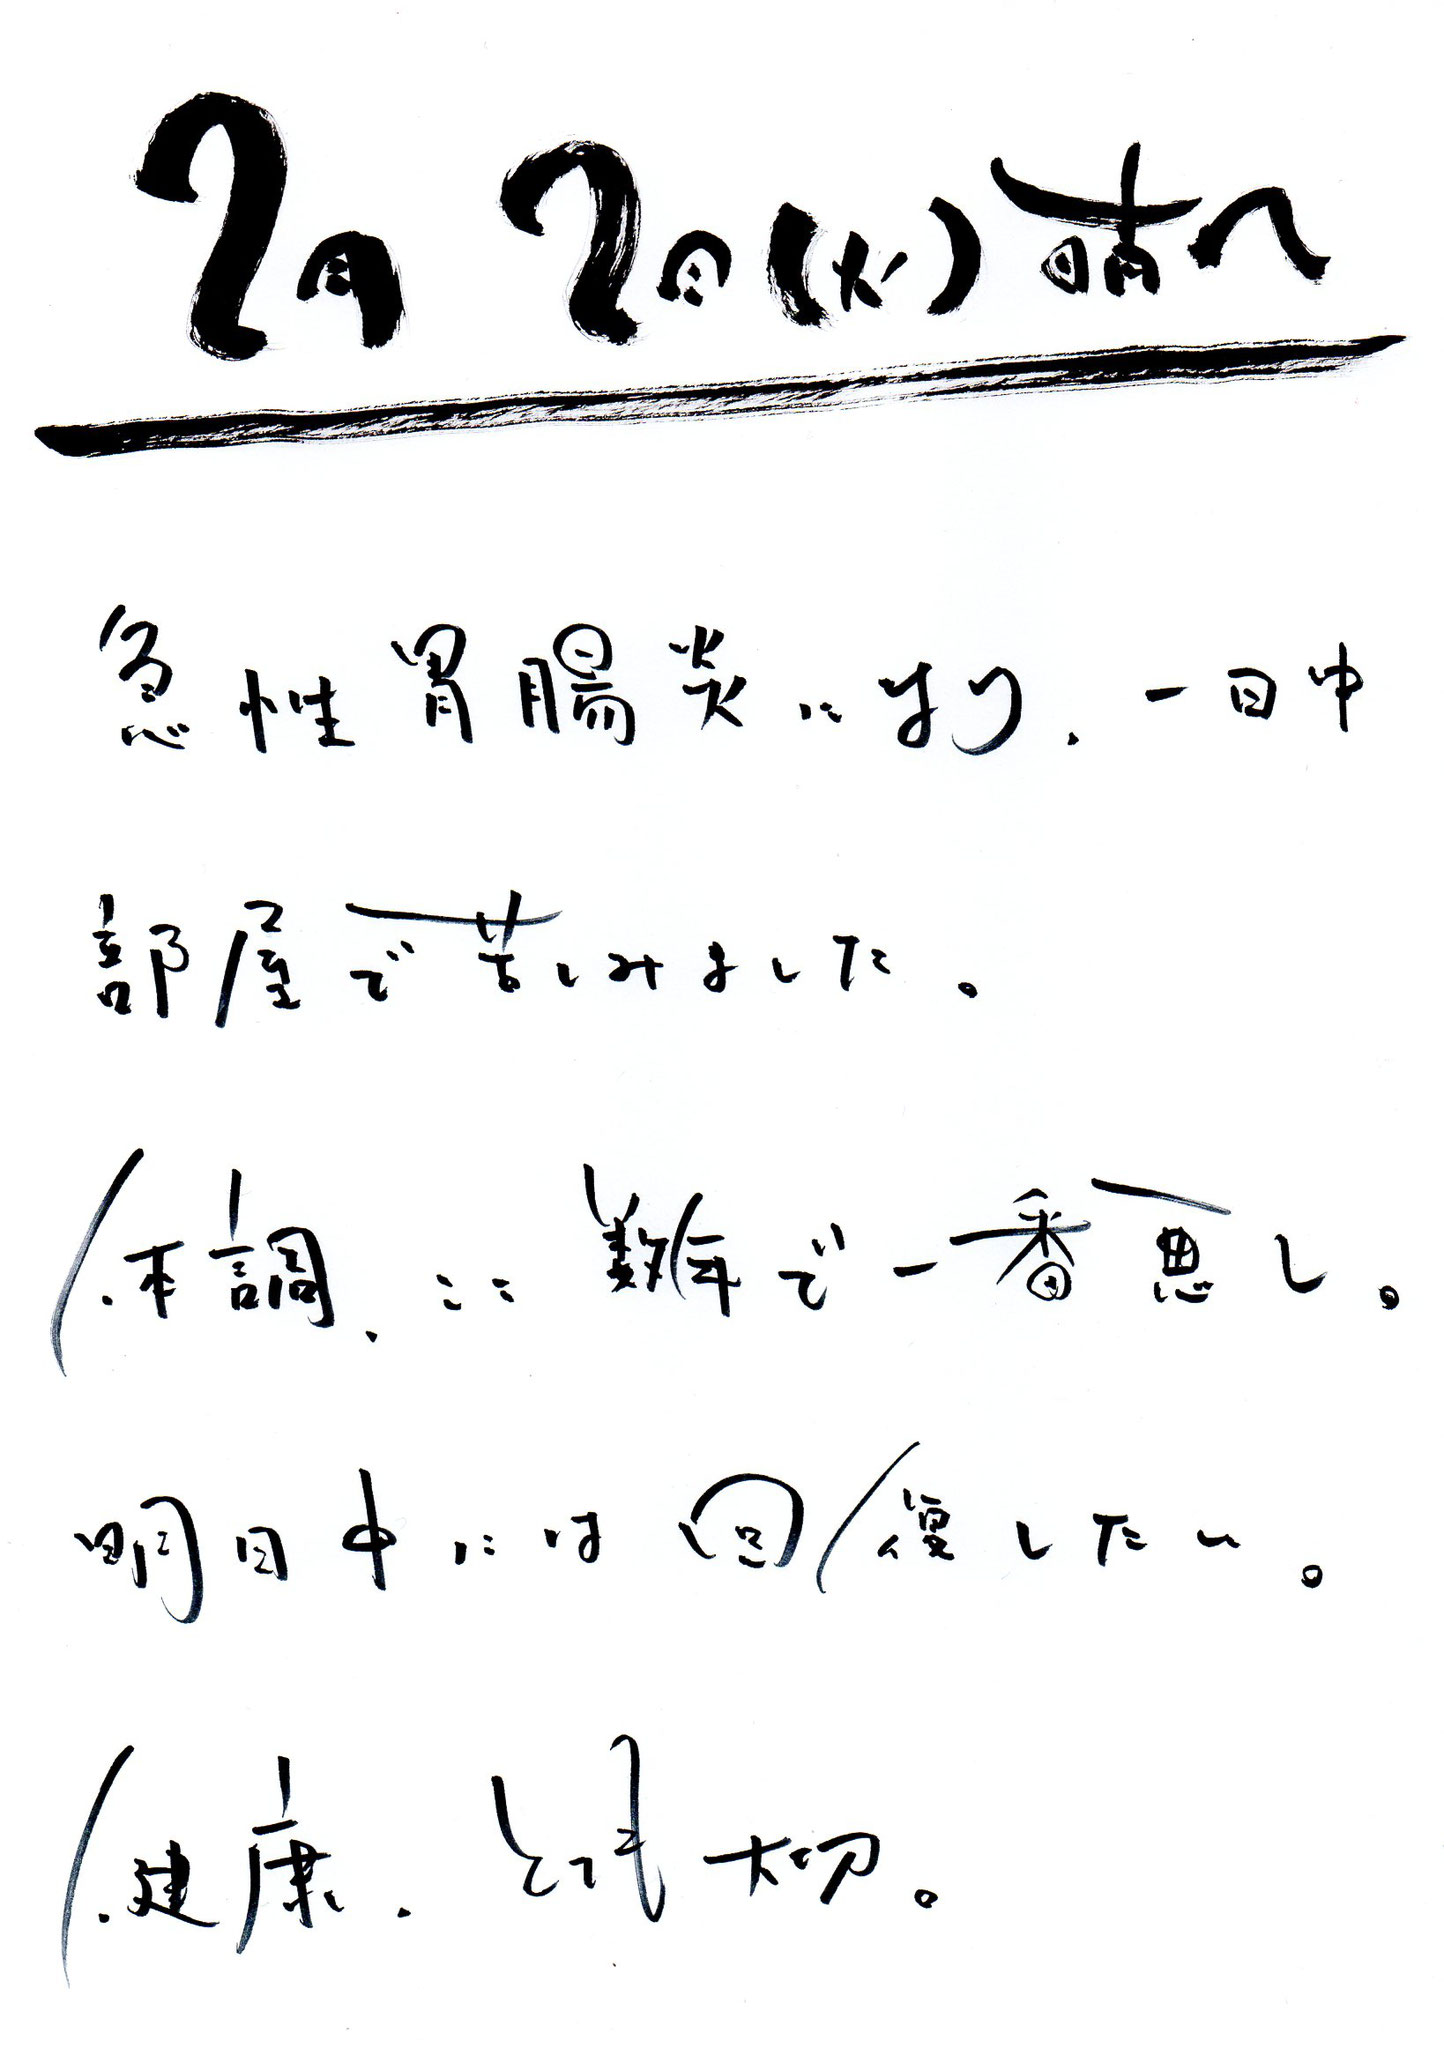 2月2日(火)晴れ
急性胃腸炎になり、一日中
部屋で苦しみました。
体調、ここ数年で一番悪し。
明日中には回復したい。
健康、とても大切。